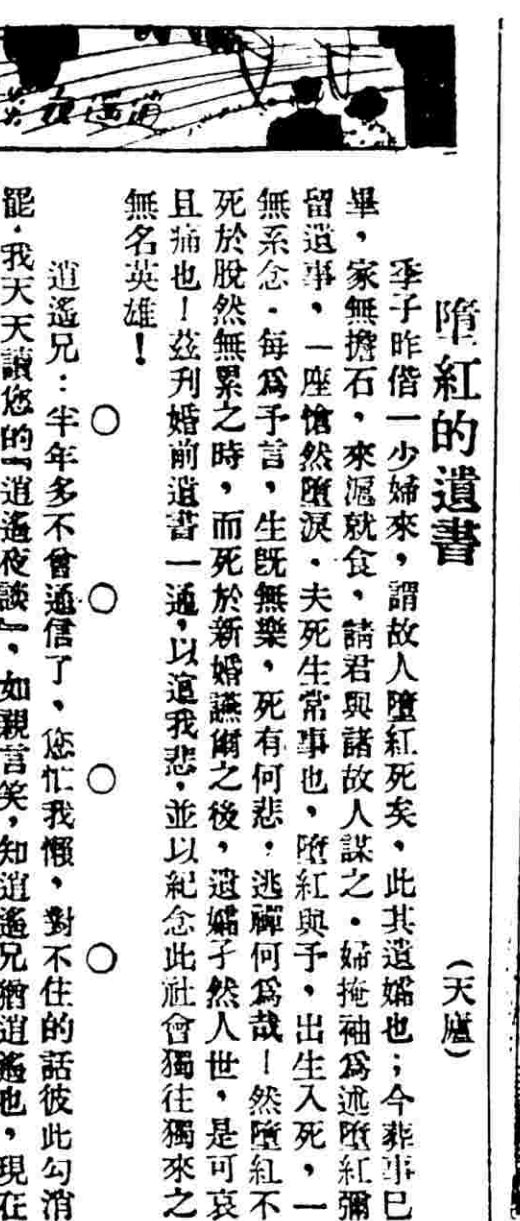 逍遙夜談
墮紅的遺書
(天廬)
季子昨偕一少婦來，謂故人墮紅死矣，此其遺孀也；今葬事已
畢，家無擔石，來滬就食，請君與諸故人謀之．婦掩袖爲述墮紅彌
留遺事，一座愴然墮淚．夫死生常事也，墮紅與予，出生入死，一
無系念．每爲予言，生旣無樂，死有何悲，逃禪何爲哉！然墮紅不
死於脫然無累之時，而死於新婚讌爾之後，遺孀孑然人世，是可哀
且痛也！茲刋婚前遺書一通，以誌我悲，並以紀念此社會獨往獨來之
無名英雄！
○　○　○　○
逍遙兄：半年多不曾通信了、您忙我懶，對不住的話彼此勾消
罷．我天天讀您的『逍遙夜談』，如親言笑，知逍遙兄猶逍遙也，現在